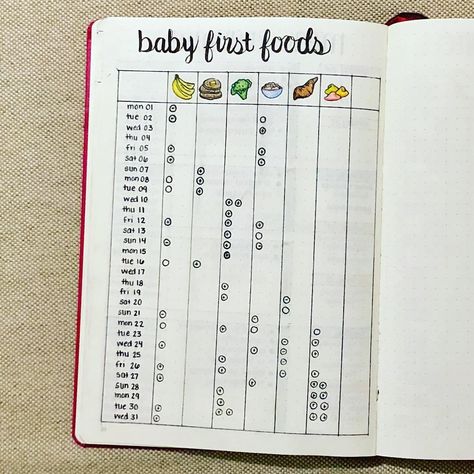 baby first foods
mon 01
tue 02
wed 03
thu 04
fri 05
sat 06
sun 07
mon 08
tue 09
wed 10
thu 11
fri 12
sat 13
sun 14
mon 15
tue 16
wed 17
thu 18
fri 19
sat 20
sun 21
mon 22
tue 23
wed 24
thu 25
fri 26
sat 27
sun 28
mon 29
tue 30
wed 31